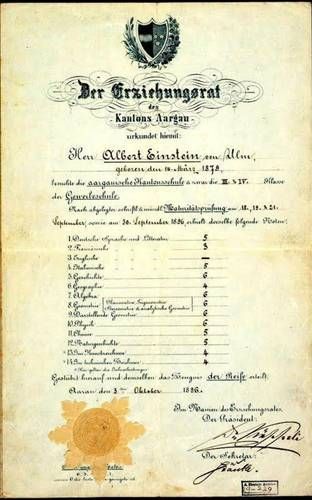 Der Erziehungsrat
des
Kantons Aargau
urkundet hiemit:
Herr Albert Einstein von Ulm,
geboren den 14. März 1879,
besuchte die aargauische Kantonsschule & zwar die III. & IV. Klasse
der Gewerbeschule.
Nach abgelegter schriftl. & mündl. Maturitätsprüfung am 18., 19. & 21.
September, sowie am 30. September 1896 erhielt derselbe folgende Noten:
1. Deutsche Sprache und Litteratur 5
2. Französische 3
3. Englische —
4. Italienische 5
5. Geschichte 6
6. Geographie 4
7. Algebra 6
8. Geometrie 6
9. Darstellende Geometrie 6
10. Physik 6
11. Chemie 5
12. Naturgeschichte 5
*13. Im Kunstzeichnen 4
*14. Im technischen Zeichnen 4
Gestützt hierauf wird demselben das Zeugnis der Reife erteilt.
Aarau den 3ten Oktober 1896.
Im Namen des Erziehungsrates,
Der Präsident:
Der Sekretär: